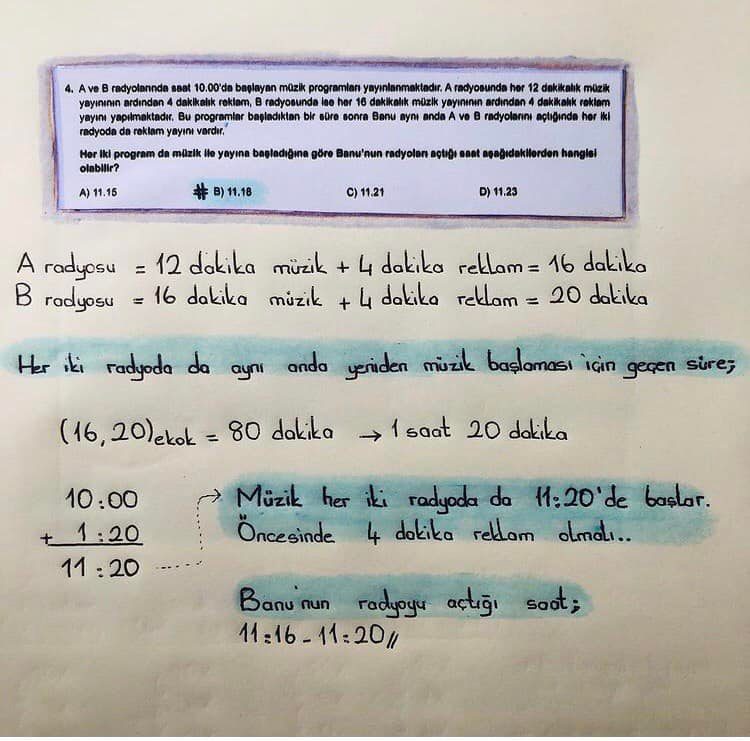 4. A ve B radyolarında saat 10.00'da başlayan müzik programları yayınlanmaktadır. A radyosunda her 12 dakikalık müzik
yayınının ardından 4 dakikalık reklam, B radyosunda ise her 16 dakikalık müzik yayınının ardından 4 dakikalık reklam
yayını yapılmaktadır. Bu programlar başladıktan bir süre sonra Banu aynı anda A ve B radyolarını açtığında her iki
radyoda da reklam yayını vardır.
Her iki program da müzik ile yayına başladığına göre Banu'nun radyoları açtığı saat aşağıdakilerden hangisi
olabilir?
A) 11.15 # B) 11.18 C) 11.21 D) 11.23
A radyosu = 12 dakika müzik + 4 dakika reklam = 16 dakika
B radyosu = 16 dakika müzik + 4 dakika reklam = 20 dakika
Her iki radyoda da aynı anda yeniden müzik başlaması için geçen süre;
(16, 20)ekok = 80 dakika → 1 saat 20 dakika
10:00
+ 1:20
11:20
Müzik her iki radyoda da 11:20'de başlar.
Öncesinde 4 dakika reklam olmalı..
Banu'nun radyoyu açtığı saat;
11:16 - 11:20//